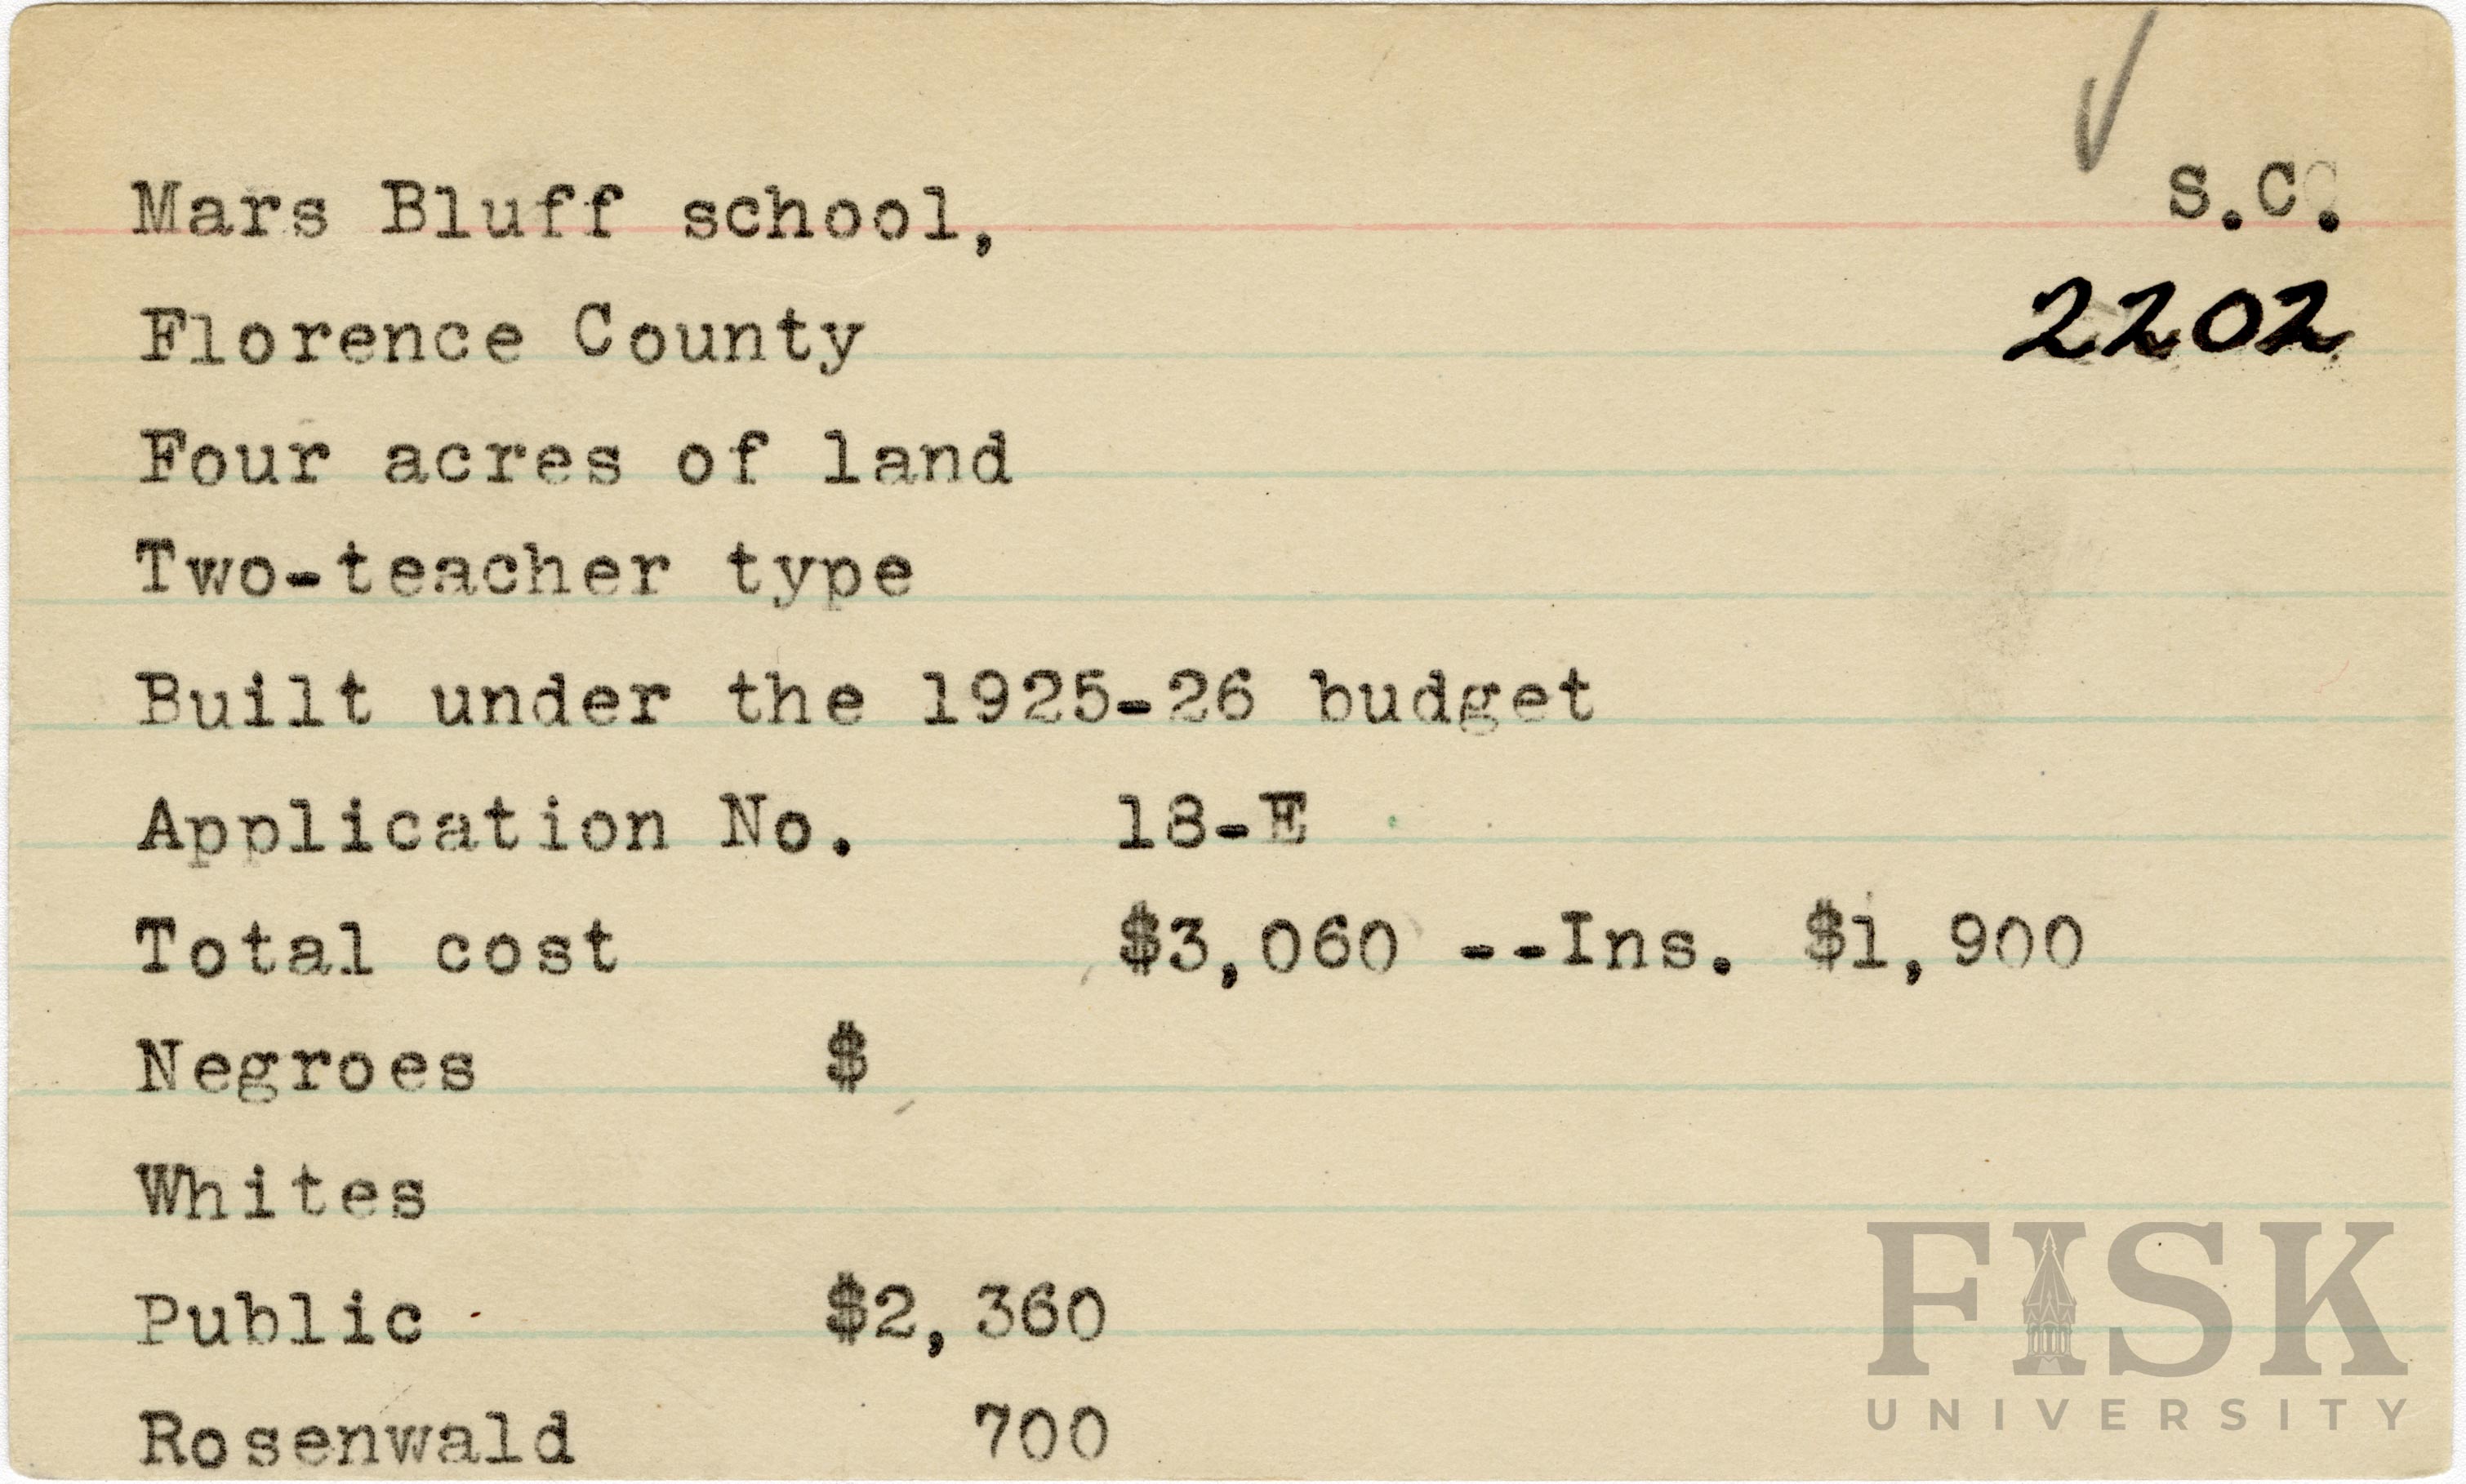 Mars Bluff school, S.C.
Florence County 2202
Four acres of land
Two-teacher type
Built under the 1925-26 budget
Application No. 18-E
Total cost $3,060 --Ins. $1,900
Negroes $
Whites
Public $2,360
Rosenwald 700
FISK
UNIVERSITY